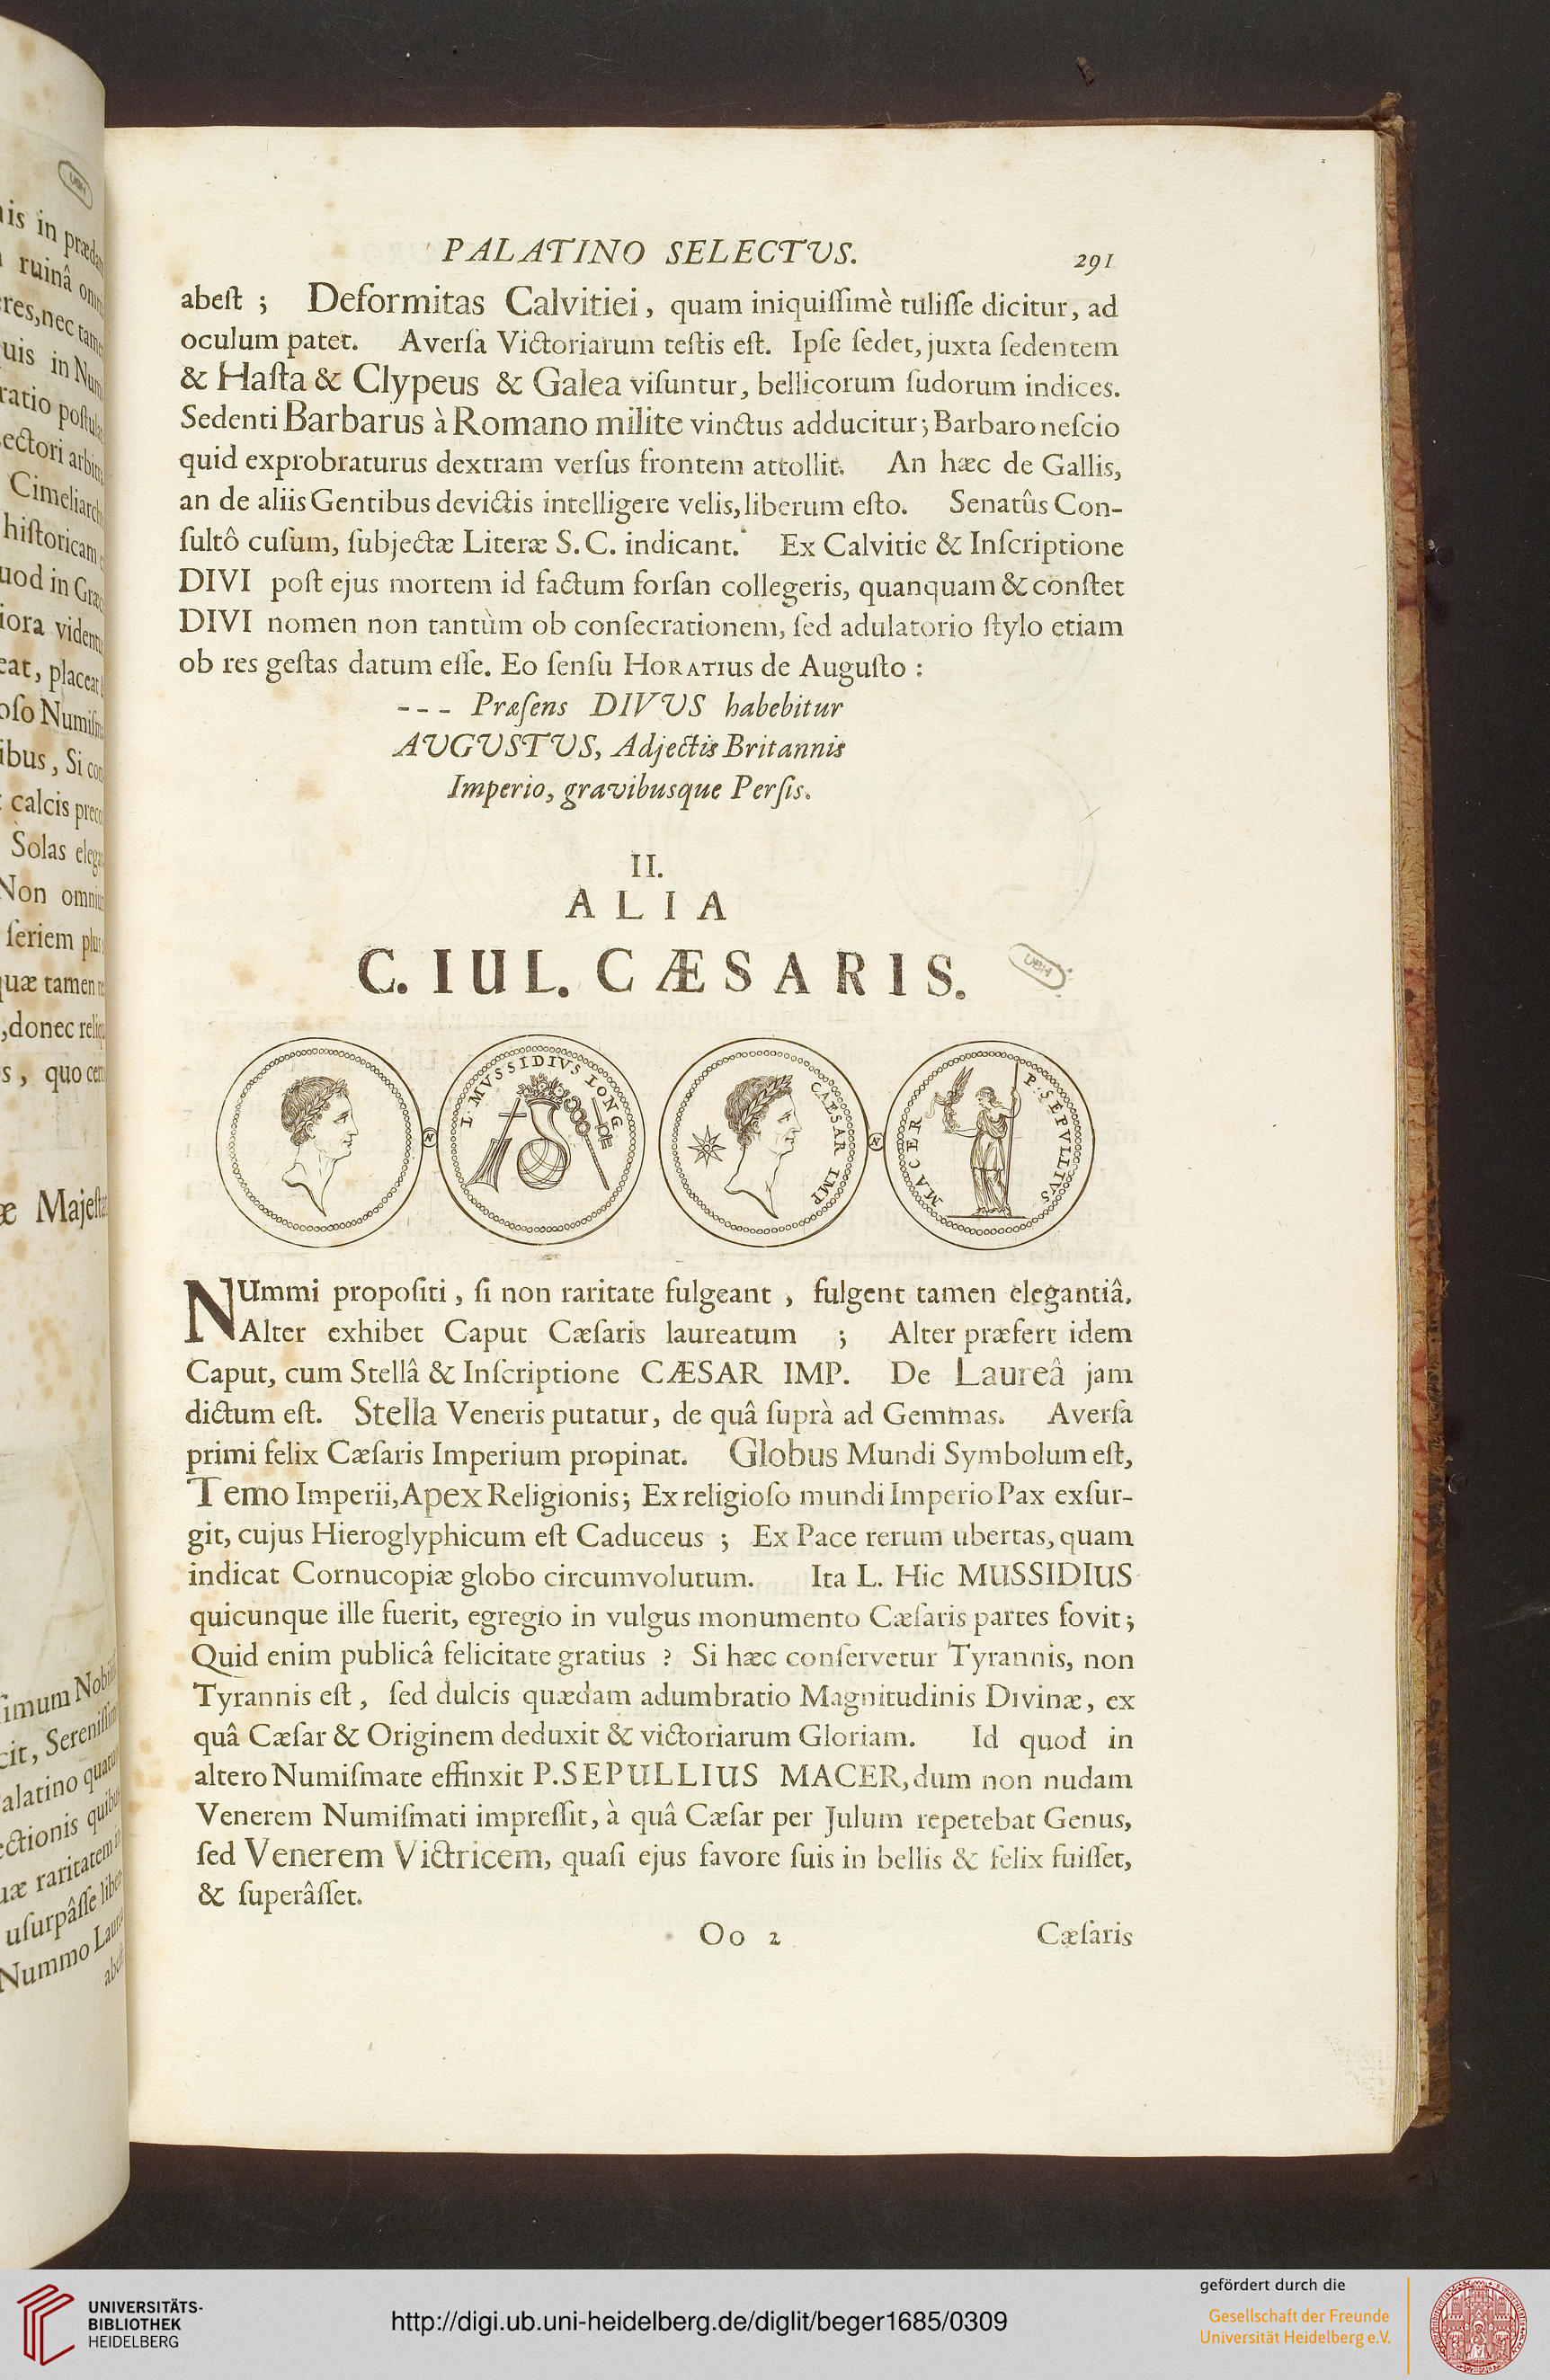 PALATINO SELECTVS. 291
abest ; Deformitas Calvitiei, quam iniquissimè tulisse dicitur, ad
oculum patet. Aversa Victoriarum testis est. Ipse sedet, juxta sedentem
& Hasta & Clypeus & Galea visuntur, bellicorum sudorum indices.
Sedenti Barbarus à Romano milite vinctus adducitur; Barbaro nescio
quid exprobraturus dextram versus frontem attollit. An hæc de Gallis,
an de aliis Gentibus devictis intelligere velis, liberum esto. Senatûs Con-
sultô cusum, subjectæ Literæ S. C. indicant. Ex Calvitie & Inscriptione
DIVI post ejus mortem id factum forsan collegeris, quanquam & constet
DIVI nomen non tantùm ob consecrationem, sed adulatorio stylo etiam
ob res gestas datum esse. Eo sensu HORATIUS de Augusto :
--- Præsens DIVUS habebitur
AUGUSTUS, Adjectis Britannis
Imperio, gravibusque Persis.
II.
ALIA
C. IUL. CÆSARIS.
UBH
L. MVSSIDIVS LONG
CAESAR IMP
P. SEPVLLIVS MACER
NUmmi propositi, si non raritate fulgeant, fulgent tamen elegantiâ.
Alter exhibet Caput Cæsaris laureatum ; Alter præfert idem
Caput, cum Stellâ & Inscriptione CÆSAR IMP. De Laureâ jam
dictum est. Stella Veneris putatur, de quâ suprà ad Gemmas. Aversa
primi felix Cæsaris Imperium propinat. Globus Mundi Symbolum est,
Temo Imperii, Apex Religionis; Ex religioso mundi Imperio Pax exsur-
git, cujus Hieroglyphicum est Caduceus ; Ex Pace rerum ubertas, quam
indicat Cornucopiæ globo circumvolutum. Ita L. Hic MUSSIDIUS
quicunque ille fuerit, egregio in vulgus monumento Cæsaris partes fovit;
Quid enim publicâ felicitate gratius ? Si hæc conservetur Tyrannis, non
Tyrannis est, sed dulcis quædam adumbratio Magnitudinis Divinæ, ex
quâ Cæsar & Originem deduxit & victoriarum Gloriam. Id quod in
altero Numismate effinxit P. SEPULLIUS MACER, dum non nudam
Venerem Numismati impressit, à quâ Cæsar per Julum repetebat Genus,
sed Venerem Victricem, quasi ejus favore suis in bellis & felix fuisset,
& superâsset.
Oo 2 Cæsaris
UNIVERSITÄTS-
BIBLIOTHEK
HEIDELBERG
http://digi.ub.uni-heidelberg.de/diglit/beger1685/0309
gefördert durch die
Gesellschaft der Freunde
Universität Heidelberg e.V.